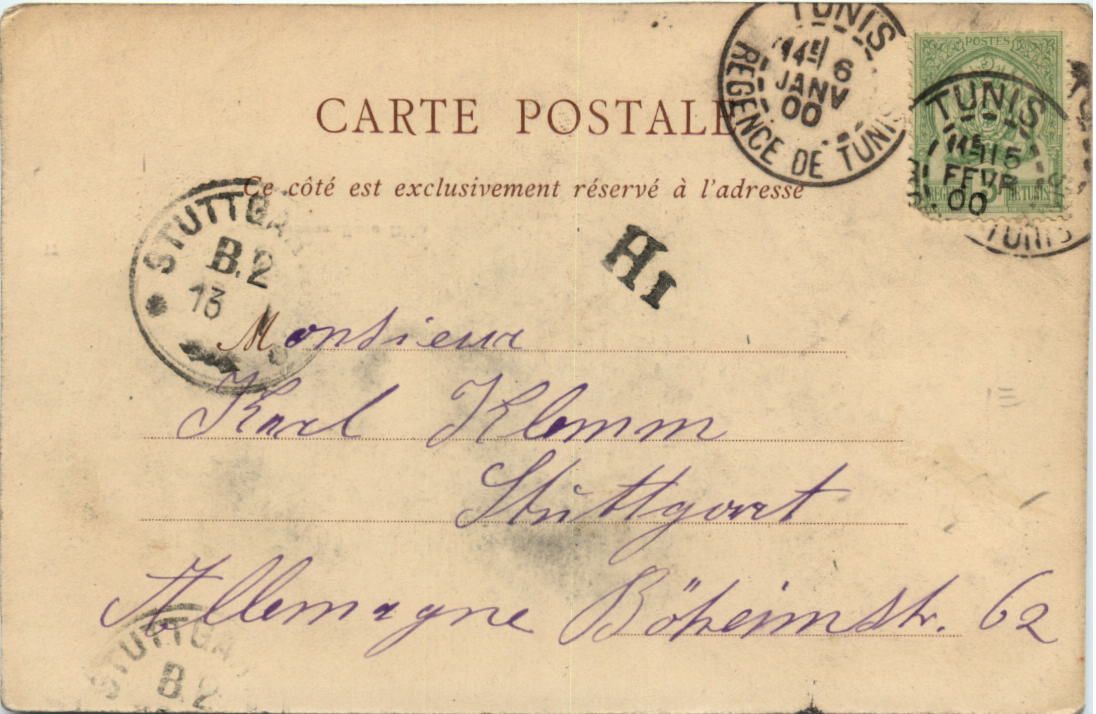 TUNIS
6
JANV
00
REGENCE DE TUNIS
POSTES
TUNIS
15
FEVR
00
TUNIS
CARTE POSTALE
Ce côté est exclusivement réservé à l'adresse
STUTTGA
B.2
13
H1
Monsieur
Karl Klemm
Stuttgart
Allemagne Böheimstr. 62
STUTTGA
B.2